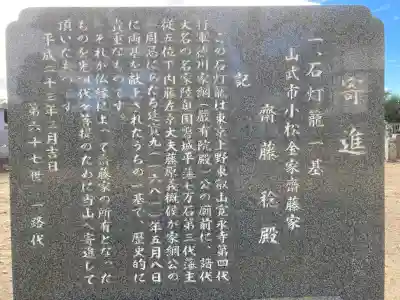 寄進
一、石灯籠一基
山武市小松金家齋藤家
齋藤稔殿
記
この石灯籠は東京上野東叡山寛永寺第四代
将軍徳川家綱(厳有院殿)公の廟前に、譜代
大名の名家陸奥国磐城平藩七万石第三代藩主
従五位下内藤左京大夫藤原義概侯が家綱公の
一周忌にあたる延宝九(一六八一)年五月八日
に両基を献下されたうちの一基で、歴史的に
貴重なものです。
それが仏縁によって齋藤家の所有となった
ものを先祖代々菩提のために当山へ寄進して
頂いたものです。
平成二十三年 月吉日
第六十七世 一路代